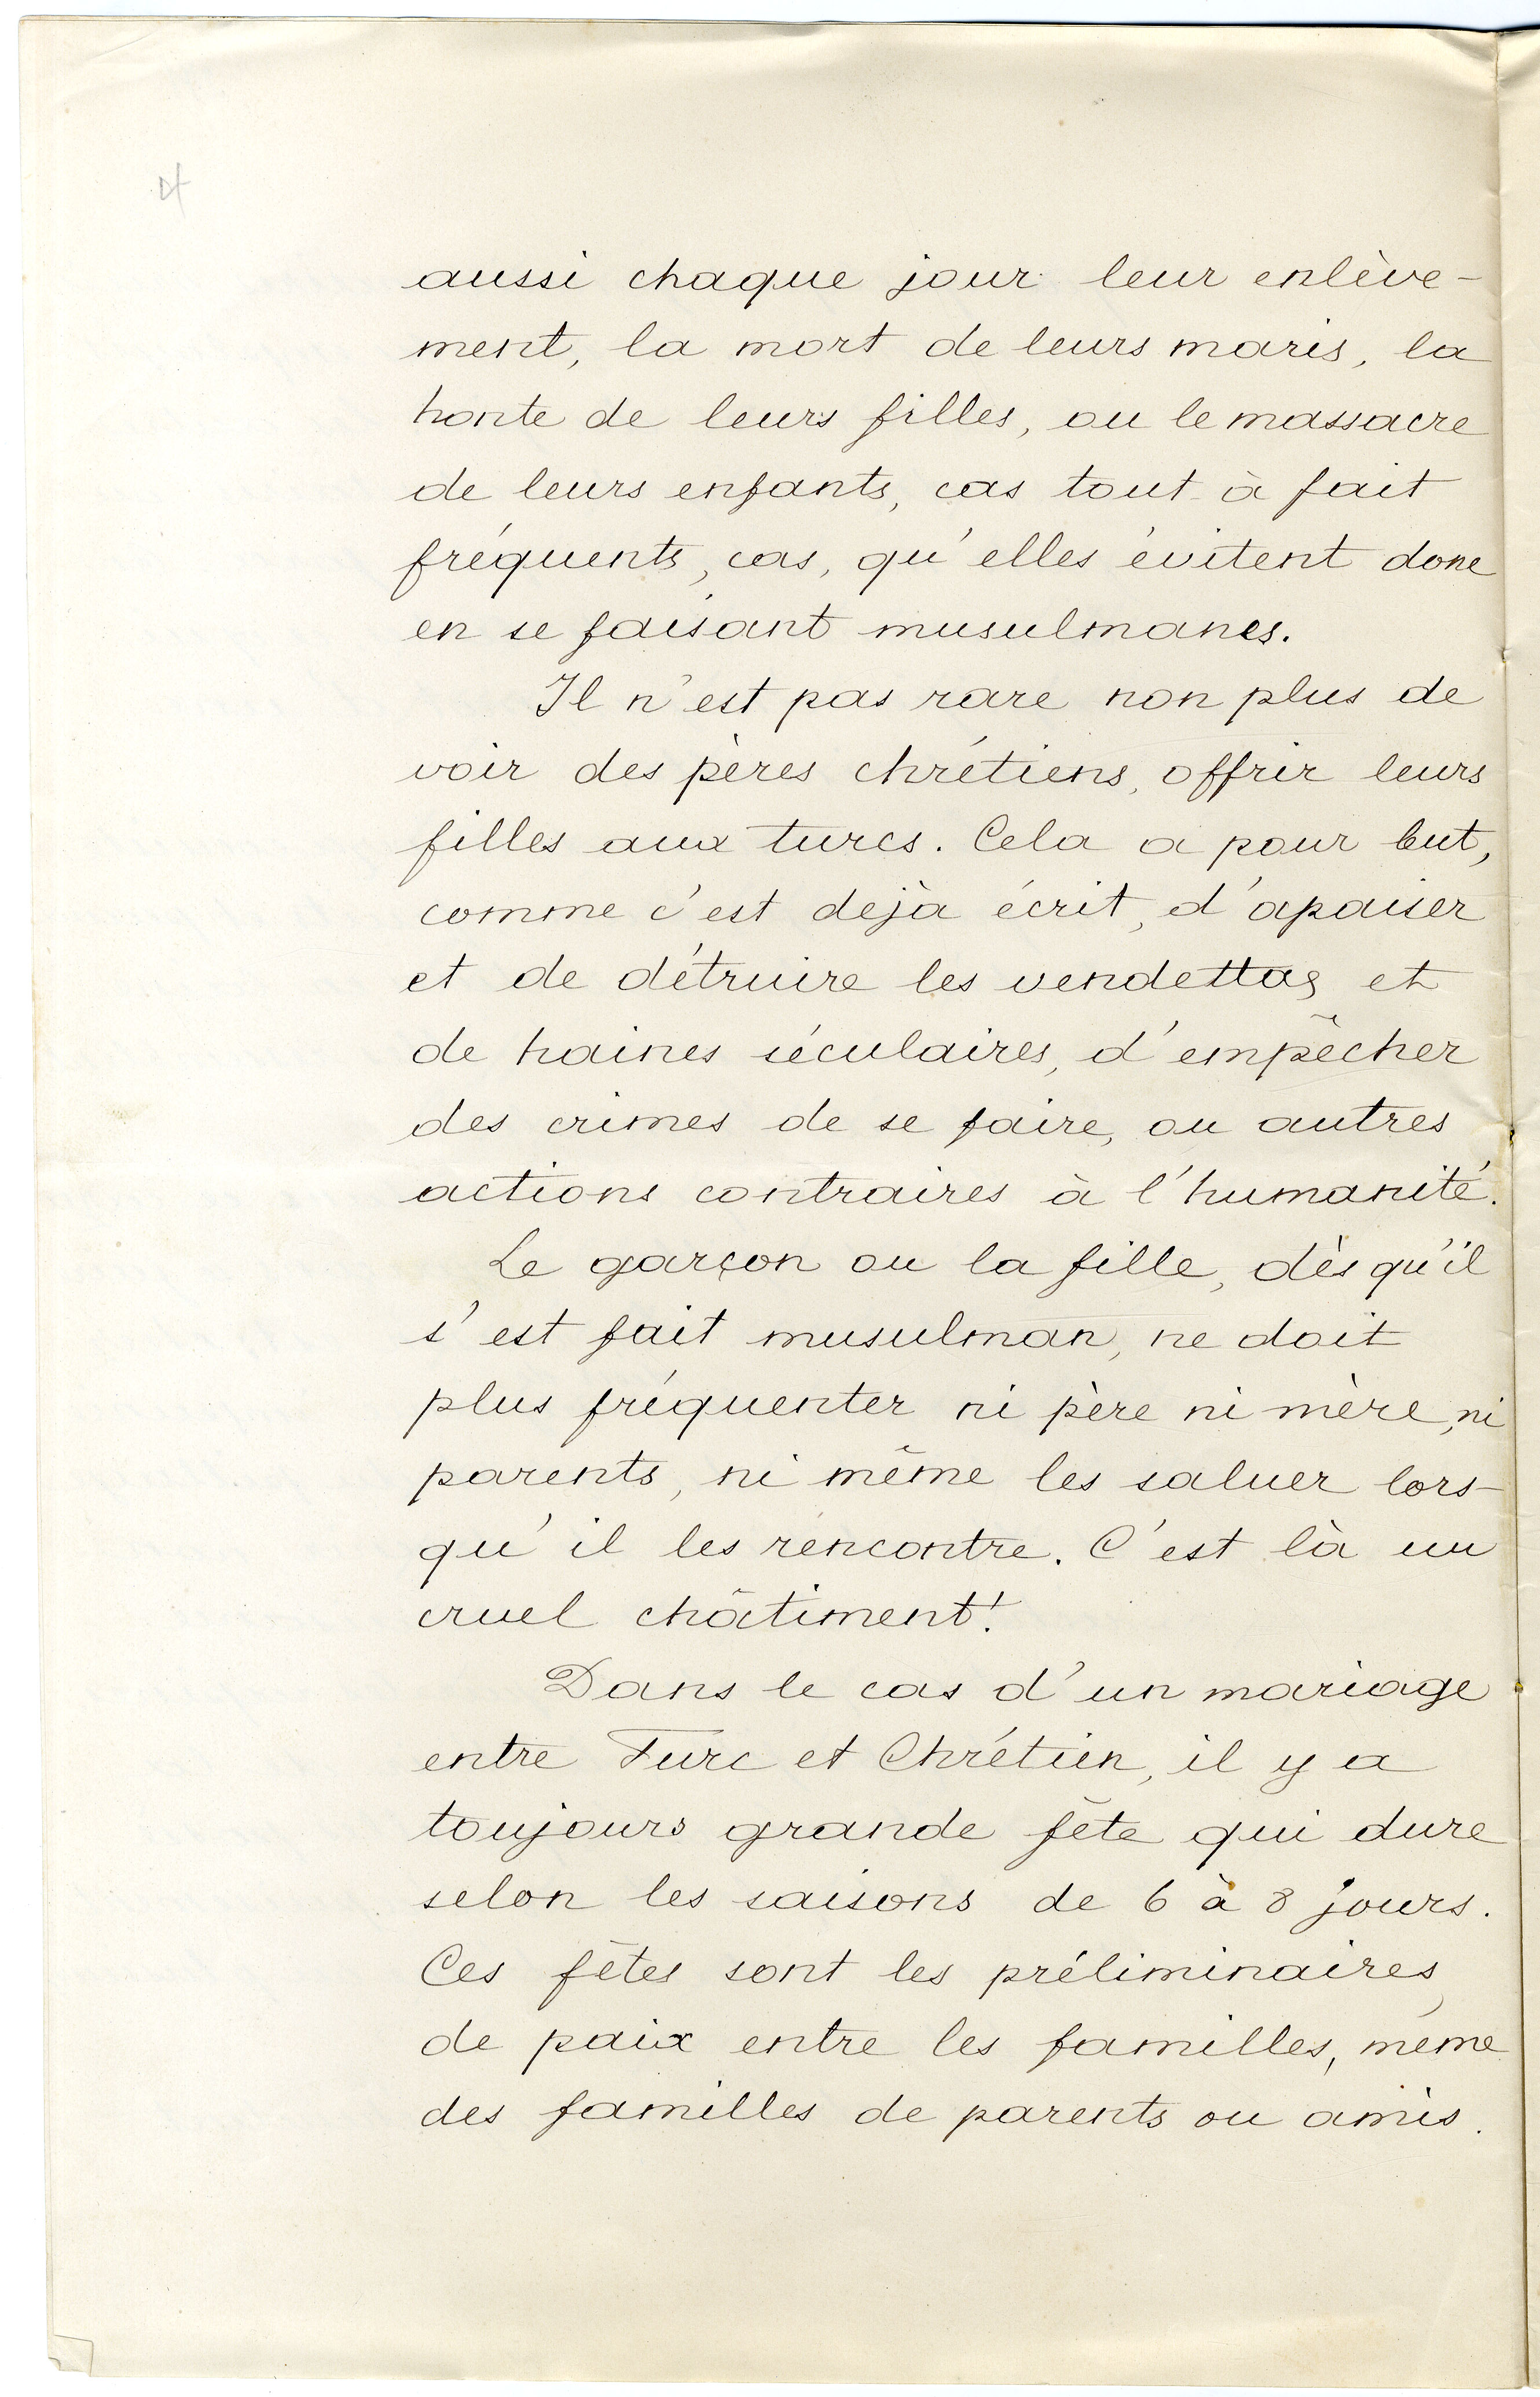 4
aussi chaque jour leur enlève-
ment, la mort de leurs maris, la
honte de leurs filles, ou le massacre
de leurs enfants, cas tout à fait
fréquents, cas, qu'elles évitent donc
en se faisant musulmanes.
Il n'est pas rare non plus de
voir des pères chrétiens, offrir leurs
filles aux turcs. Cela a pour but,
comme c'est dejà écrit, d'apaiser
et de détruire les vendettas et
de haines séculaires, d'empêcher
des crimes de se faire, ou autres
actions contraires à l'humanité.
Le garçon ou la fille, dès qu'il
s'est fait musulman, ne doit
plus fréquenter ni père ni mère, ni
parents, ni même les saluer lors-
qu'il les rencontre. C'est là un
cruel châtiment!
Dans le cas d'un mariage
entre Turc et Chrétien, il y a
toujours grande fête qui dure
selon les saisons de 6 à 8 jours.
Ces fêtes sont les préliminaires
de paix entre les familles, même
des familles de parents ou amis.